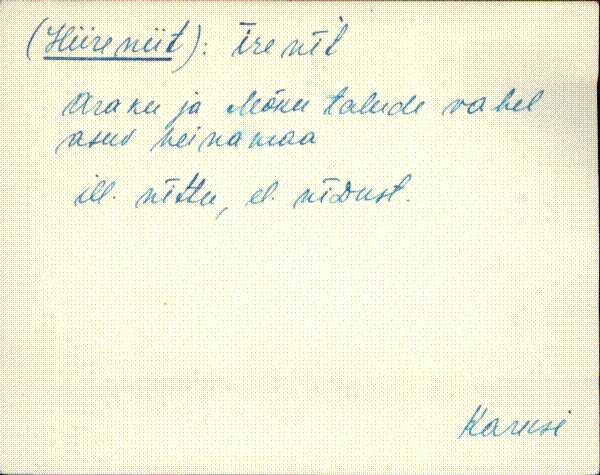 (Hiireniit): īre nīt
Araku ja Mõku talude vahel
asuv heinamaa
ill. nīttu, el. nīdust.
Karuse